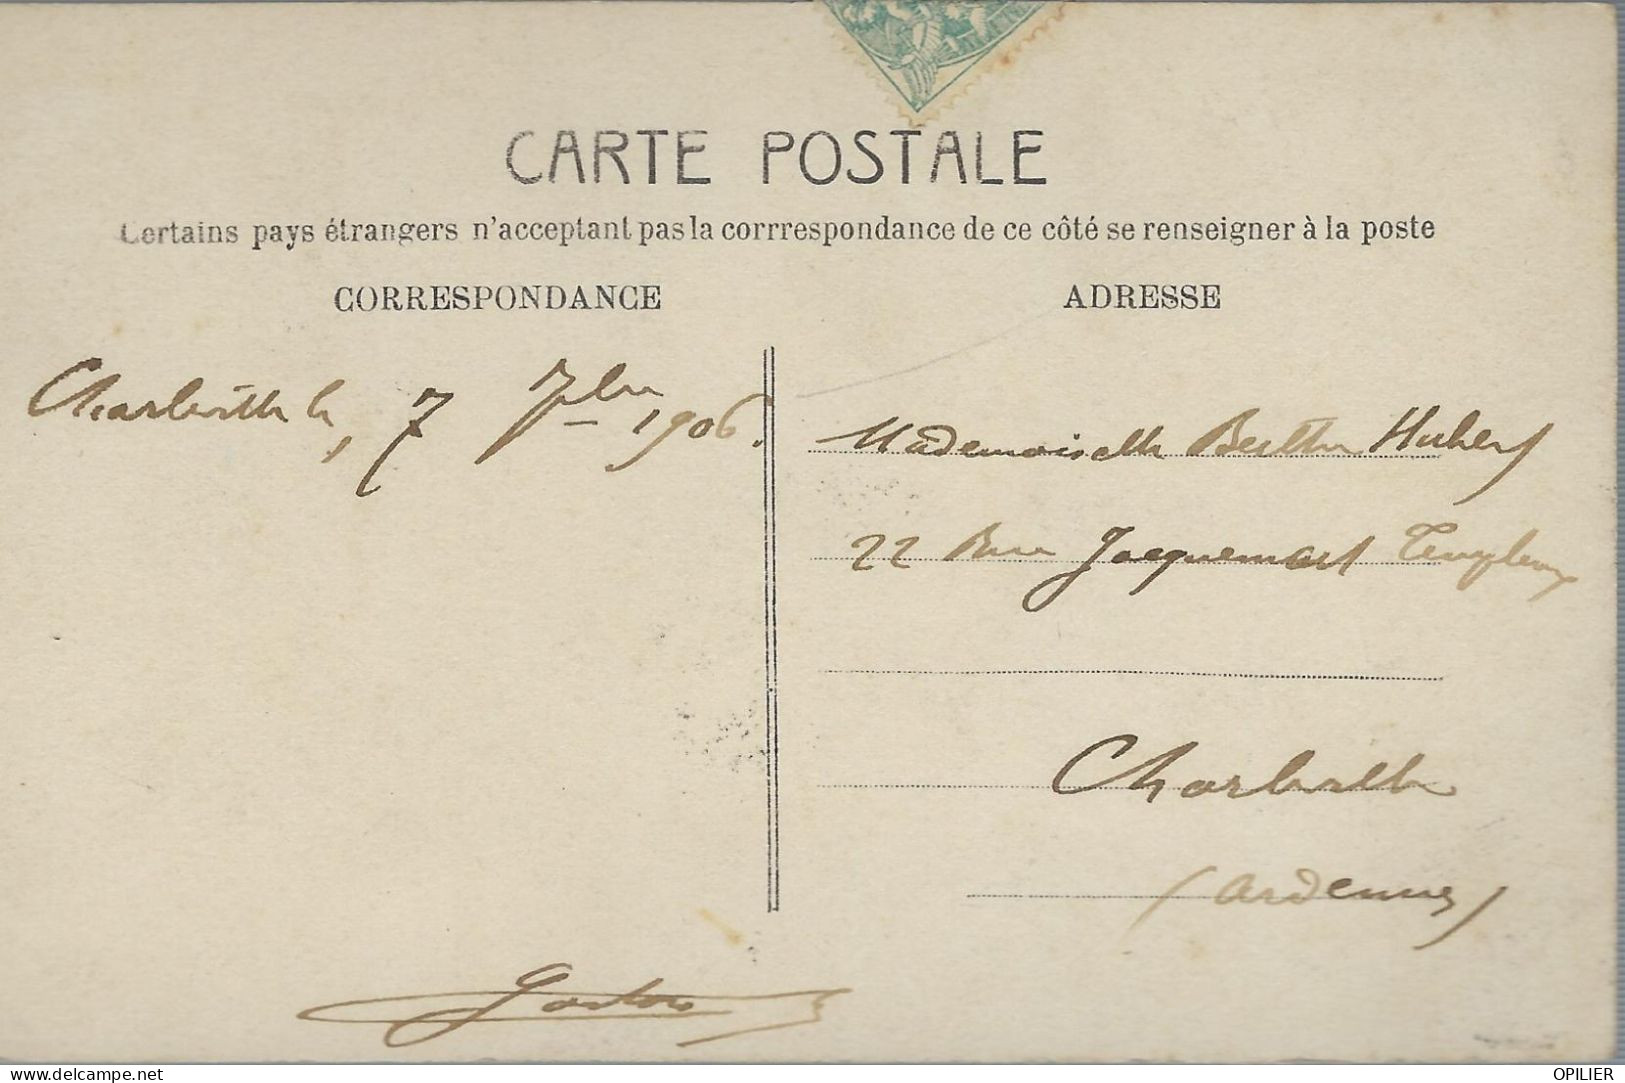 CARTE POSTALE
Certains pays étrangers n'acceptant pas la corrrespondance de ce côté se renseigner à la poste
CORRESPONDANCE
ADRESSE
Charleville le, 7 7bre 1906.
Mademoiselle Berthe Hubert
22 Rue Jacquemart Templeux
Charleville
(Ardennes)
Gaston
www.delcampe.net
OPILIER